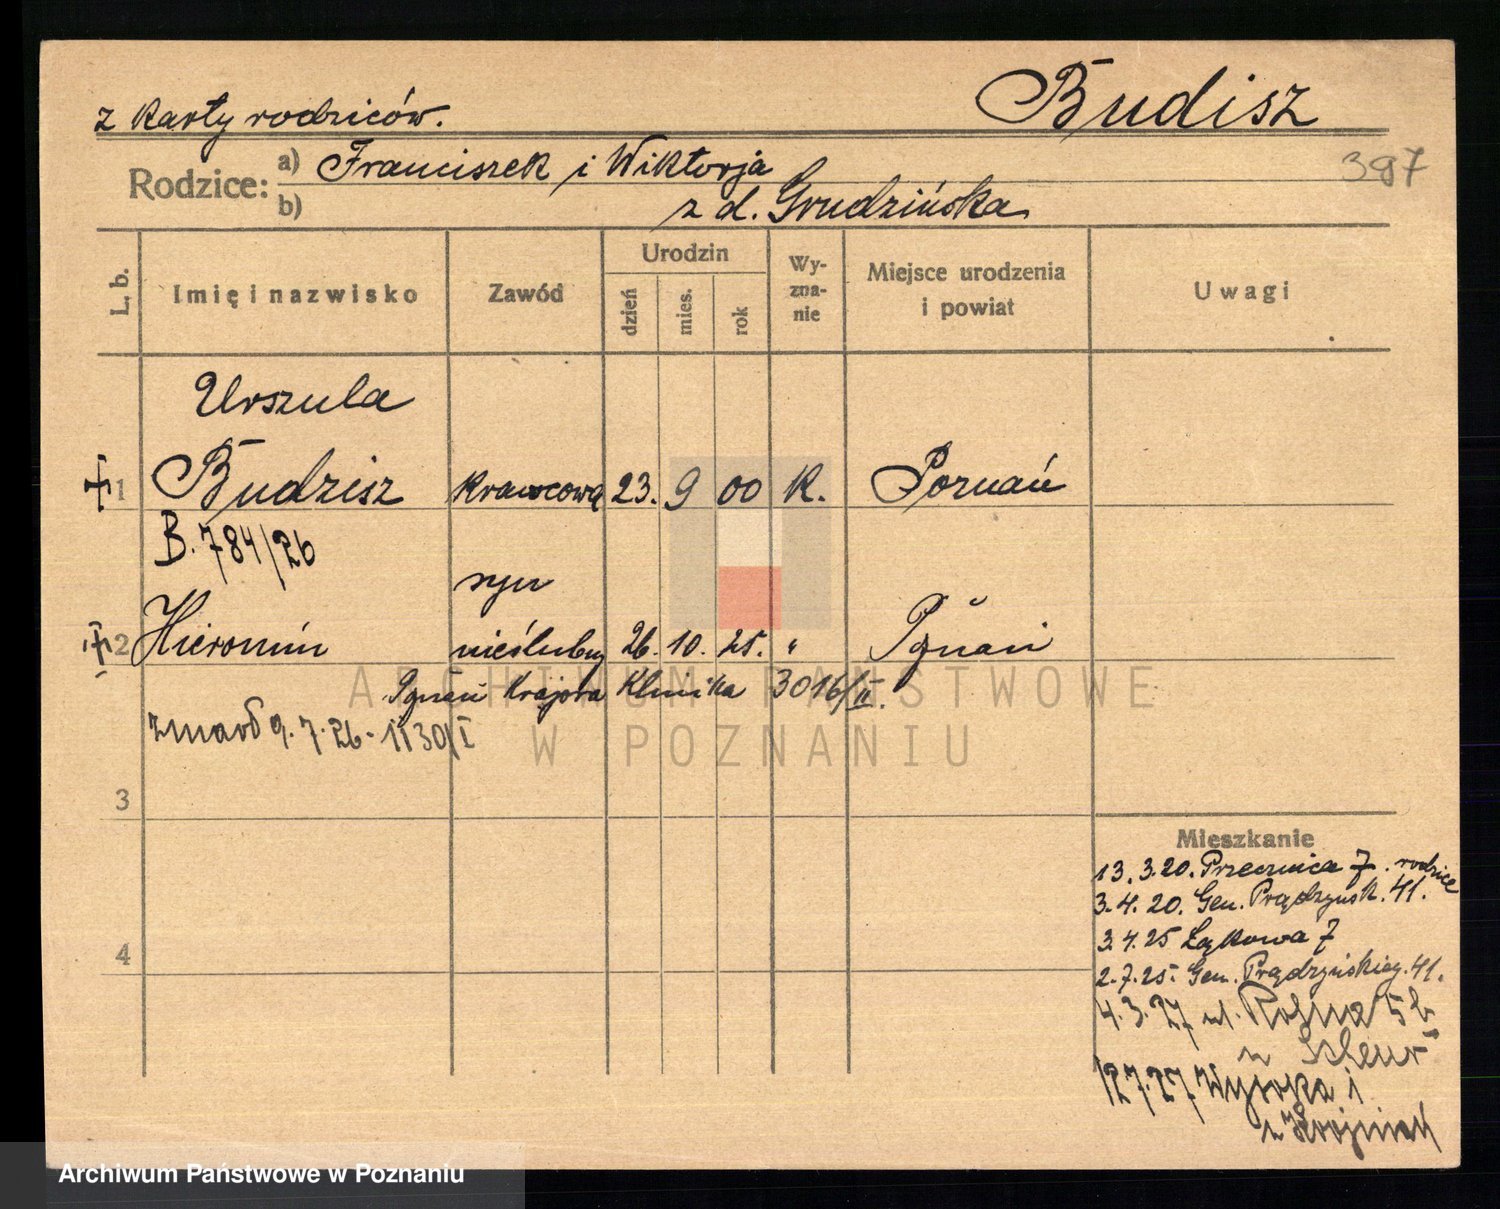 Budisz
z karty rodziców.
387
Rodzice: a) Franciszek i Wiktorja
b) z d. Grudzińska
L. b. Imię i nazwisko Zawód Urodzin dzień mies. rok Wy- zna- nie Miejsce urodzenia i powiat Uwagi
Urszula
1 Budzisz krawcowa 23. 9 00 K. Poznań
B. 784/26
syn
2 Hieronim nieślubny 26. 10. 25. " Pznań
Pznań Krajowa Klinika 3016/II.
zmarł 9.7.26. 1130/I
3
4
Mieszkanie
13.3.20. Przecznica 7. rodzice
3.4.20. Gen. Prądzyńsk. 41.
3.4.25 Łąkowa 7
2.7.25. Gen. Prądzyńskieg. 41.
4.3.27 ul. Rolna 5b
u Scheur
12.7.27 Wysoka 1
u
ARCHIWUM PAŃSTWOWE
W POZNANIU
Archiwum Państwowe w Poznaniu